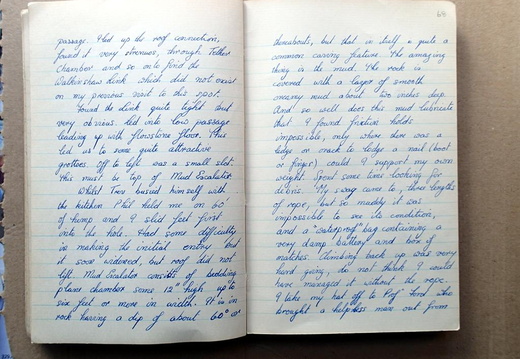 passage. Phil up the roof connection,
found it very strenuous, through
Chamber and so onto find the
Walkerthon Link which did not exist
on my previous visit to this spot.
Found the Link quite tight but
very obvious. Led into low passage
leading up with flowstone floor. This
led us to some quite attractive
grottoes. Off to left was a small slot.
This must be top of Mud Escalator.
Whilst Trev busied himself with
the kitchen Phil held me on 60'
of hemp and I slid feet first
into the hole. Had some difficulty
in making the initial entry, but
it soon widened, but roof did not
lift. Mud Escalator consists of bedding
plane chamber some 12" high up to
six feet or more in width. It is in
rock having a dip of about 60° or
64
thereabouts, but that in itself is quite a
common caving feature. The amazing
thing is the mud. The rock is
covered with a layer of smooth
creamy mud about two inches deep.
And so well does this mud lubricate
that I found friction holds
impossible, only where there was a
ledge or crack to lodge a nail (boot
or finger) could I support my own
weight. Spent some time looking for
debris. My swag came to, three lengths
of rope, but so muddy it was
impossible to see its condition,
and a "waterproof" bag containing a
very damp battery and box of
matches. Climbing back up was very
hard going, do not think I could
have managed it without the rope.
I take my hat off to Prof Lord who
brought a helpless man out from